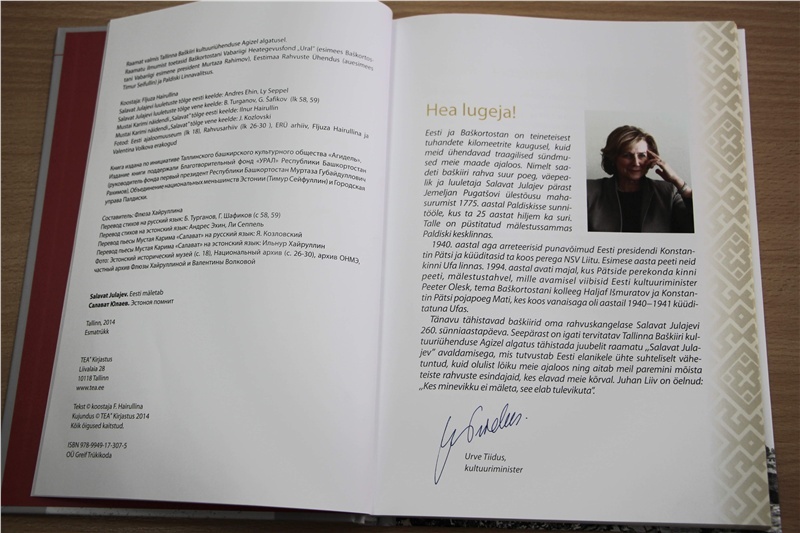 Raamat valmis Tallinna Baškiiri kultuuriühenduse Agizel algatusel.
Raamatu ilmumist toetasid Baškortostani Vabariigi Heategevusfond „Ural“ (esimees Baškortos-
tani Vabariigi esimene president Murtaza Rahimov), Eestimaa Rahvuste Ühendus (auesimees
Timur Seifullin) ja Paldiski Linnavalitsus.
Koostaja: Fljuza Hairullina
Salavat Julajevi luuletuste tõlge eesti keelde: Andres Ehin, Ly Seppel
Salavat Julajevi luuletuste tõlge vene keelde: B. Turganov, G. Šafikov (lk 58, 59)
Mustai Karimi näidendi „Salavat“ tõlge eesti keelde: Ilnur Hairullin
Mustai Karimi näidendi „Salavat“ tõlge vene keelde: J. Kozlovski
Fotod: Eesti ajaloomuuseum (lk 18), Rahvusarhiiv (lk 26-30 ), ERÜ arhiiv, Fljuza Hairullina ja
Valentina Volkova erakogud
Книга издана по инициативе Таллинского башкирского культурного общества «Агидель».
Издание книги поддержали Благотворительный фонд «УРАЛ» Республики Башкортостан
(руководитель фонда первый президент Республики Башкортостан Муртаза Губайдуллович
Рахимов), Объединение национальных меньшинств Эстонии (Тимур Сейфуллин) и Городская
управа Палдиски.
Составитель: Флюза Хайруллина
Перевод стихов на русский язык: Б. Турганов, Г. Шафиков (с 58, 59)
Перевод стихов на эстонский язык: Андрес Эхин, Ли Сеппель
Перевод пьесы Мустая Карима «Салават» на русский язык: Я. Козловский
Перевод пьесы Мустая Карима «Салават» на эстонский язык: Ильнур Хайруллин
Фото: Эстонский исторический музей (с. 18), Национальный архив (с. 26-30), архив ОНМЭ,
частный архив Флюзы Хайруллиной и Валентины Волковой
Salavat Julajev. Eesti mäletab
Салават Юлаев. Эстония помнит
Tallinn, 2014
Esmatrükk
TEA Kirjastus
Liivalaia 28
10118 Tallinn
www.tea.ee
Tekst © koostaja F. Hairullina
Kujundus © TEA Kirjastus 2014
Kõik õigused kaitstud.
ISBN 978-9949-17-307-5
OÜ Greif Trükikoda
Hea lugeja!
Eesti ja Baškortostan on teineteisest
tuhandete kilomeetrite kaugusel, kuid
meid ühendavad traagilised sündmu-
sed meie maade ajaloos. Nimelt saa-
deti baškiiri rahva suur poeg, väepea-
lik ja luuletaja Salavat Julajev pärast
Jemeljan Pugatšovi ülestõusu maha-
surumist 1775. aastal Paldiskisse sunni-
tööle, kus ta 25 aastat hiljem ka suri.
Talle on püstitatud mälestussammas
Paldiski kesklinnas.
1940. aastal aga arreteerisid punavõimud Eesti presidendi Konstan-
tin Pätsi ja küüditasid ta koos perega NSV Liitu. Esimese aasta peeti neid
kinni Ufa linnas. 1994. aastal avati majal, kus Pätside perekonda kinni
peeti, mälestustahvel, mille avamisel viibisid Eesti kultuuriminister
Peeter Olesk, tema Baškortostani kolleeg Haljaf Išmuratov ja Konstan-
tin Pätsi pojapoeg Mati, kes koos vanaisaga oli aastail 1940–1941 küüdi-
tatuna Ufas.
Tänavu tähistavad baškiirid oma rahvuskangelase Salavat Julajevi
260. sünniaastapäeva. Seepärast on igati tervitatav Tallinna Baškiiri kul-
tuuriühenduse Agizel algatus tähistada juubelit raamatu „Salavat Jula-
jev“ avaldamisega, mis tutvustab Eesti elanikele ühte suhteliselt vähe-
tuntud, kuid olulist lõiku meie ajaloos ning aitab meil paremini mõista
teiste rahvuste esindajaid, kes elavad meie kõrval. Juhan Liiv on öelnud:
„Kes minevikku ei mäleta, see elab tulevikuta“.
Urve Tiidus,
kultuuriminister